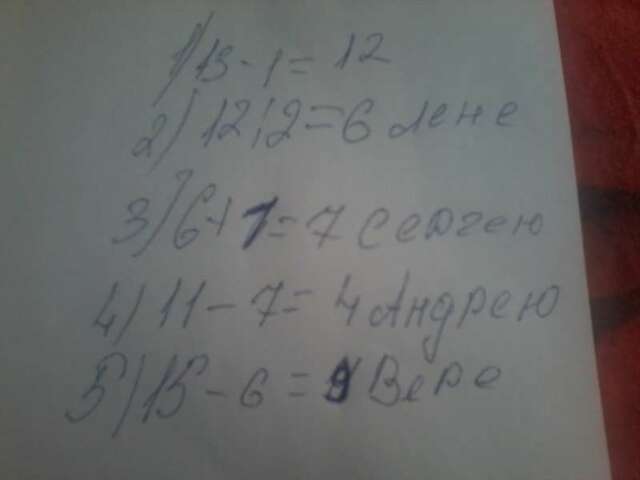 1) 13-1=12
2) 12:2=6 лене
3) 6+1=7 Сергею
4) 11-7=4 Андрею
5) 15-6=9 Вере